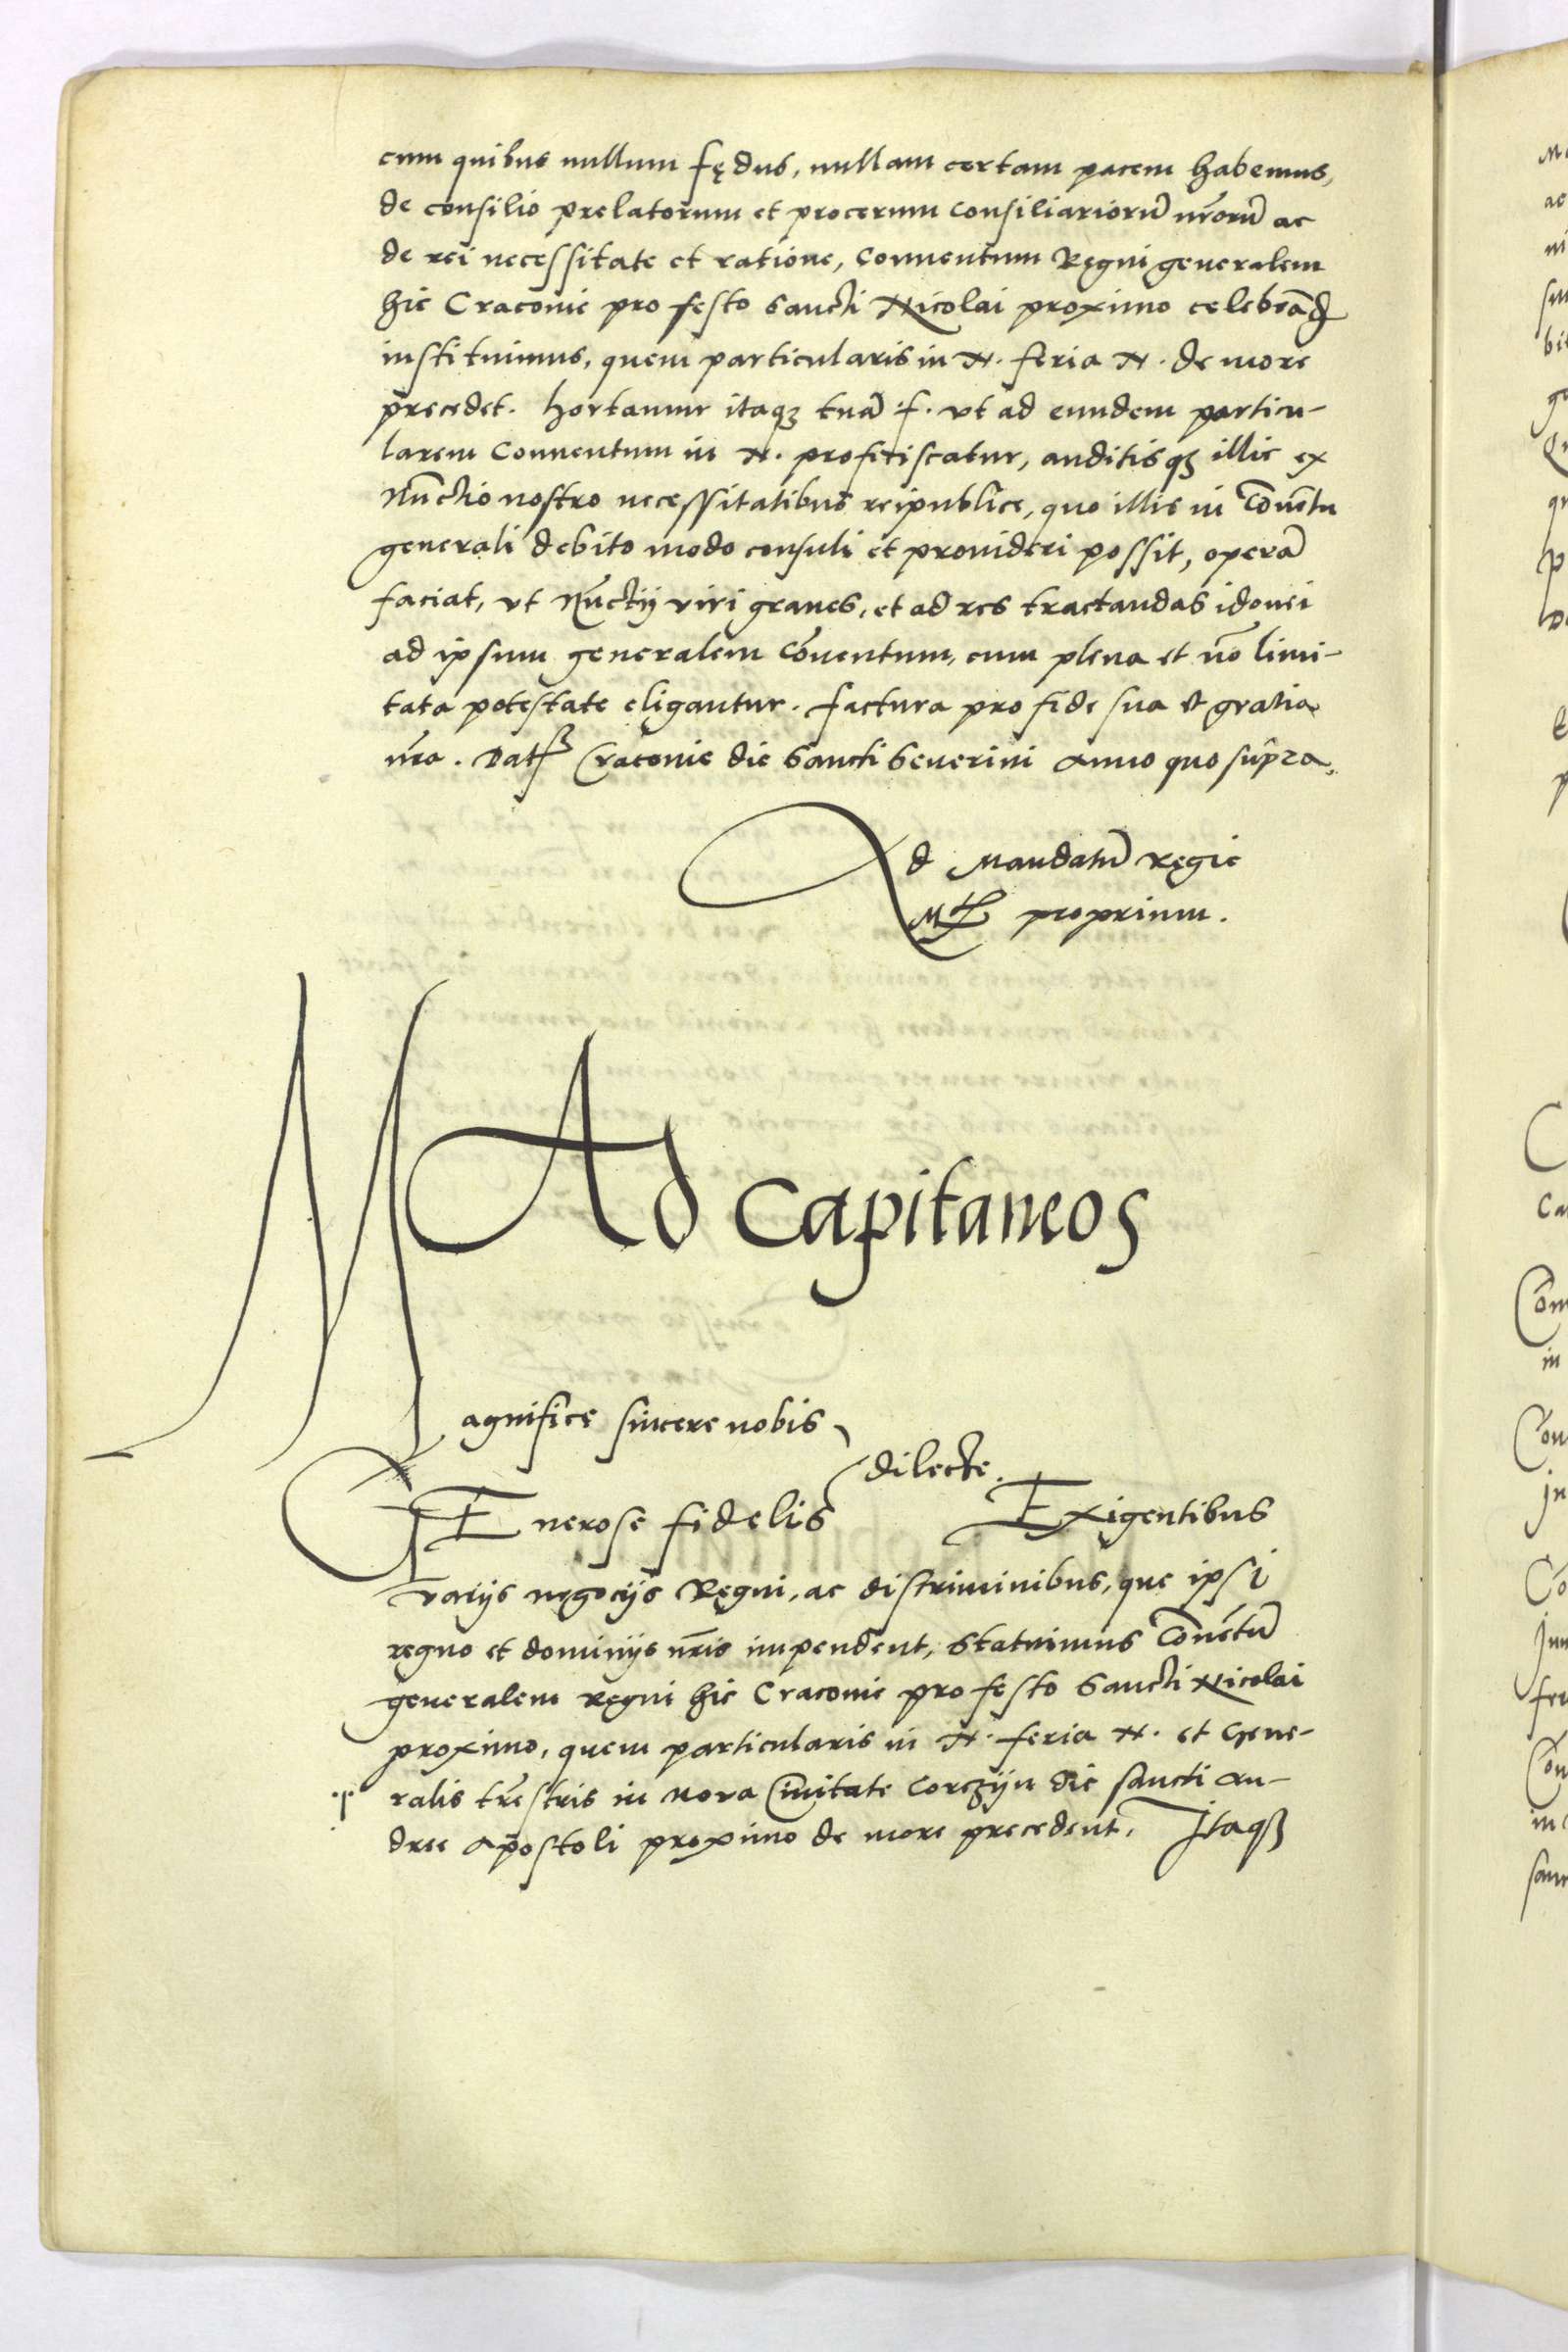 cum quibus nullum fędus, nullam certam pacem habemus,
de consilio prelatorum et procerum consiliariorū nr̄orū ac
de rei necessitate et ratione, Conuentum Regni generalem
hic Craconie pro festo Sancti Nicolai proximo celebrād
instituimus, quem particularis in N. feria N. de more
precedet. hortamur itaqȝ tuā .f. vt ad eundem particu-
larem Conuentum in N. proficiscatur, auditisqȝ illic ex
Nūctio nostro necessitatibus reipublice, quo illis in Conuētu
generali debito modo consuli et prouideri possit, operā
faciat, vt Nūctij viri graues, et ad res tractandas idonei
ad ipsum generalem cōuentum, cum plena et nō limi-
tata potestate eligantur. factura pro fide sua et gratia
nr̄a. Datȝ Craconie die Sancti Seuerini anno quo supra.
Ad Mandatū Regie
Mtȝ proprium.
Ad Capitaneos
Magnifice sincere nobis
dilecte.
GEnerose fidelis Exigentibus
varijs negocijs Regni, ac discriminibus, que ipsi
regno et dominijs nr̄is impendent, Statuimus Conuētū
generalem regni hic Craconie pro festo Sancti Nicolai
proximo, quem particularis in N. feria N. et Gene-
ralis tr̄estris in Nova Ciuitate Corczijn die sancti An-
dree apostoli proximo de more precedent. Itaqȝ